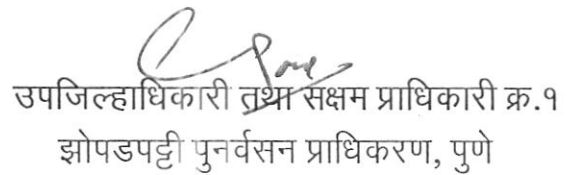 उपजिल्हाधिकारी तथा सक्षम प्राधिकारी क्र.१
झोपडपट्टी पुनर्वसन प्राधिकरण, पुणे